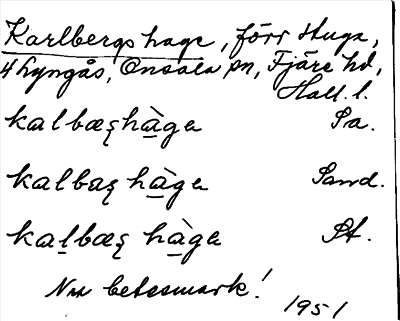 Karlbergs hage, förr stuga,
4 Lyngås, Onsala sn, Fjäre hd,
Hall. l.
kalbæʂhàga Sa.
kalbaʂ hàga Sand.
kaḻbæʂ hàga St.
Nu betesmark!
1951